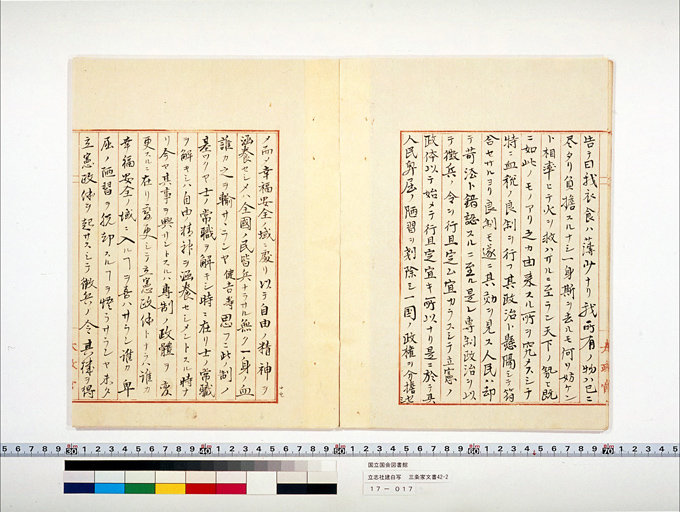 告ク曰我衣食ハ薄少ナリ我所有ノ物ハ已ニ
尽タリ負擔スルナシ一身斯ヲ去ルモ何ソ妨ケン
ト相率ヒテ火ヲ救ハサルニ至ラン天下ノ勢已ニ既
ニ如此ノモノアリ之カ由来スル所ヲ究メスシテ
特ニ血税ノ良制ヲ行フ其政治ト懸隔シテ符
合セサルヨリ良制モ遂ニ其効ヲ見ス人民ハ却
テ苛法ト錯認スルニ至ル是レ専制政治ヲ以
テ徴兵ノ令ヲ行且定ム宜カラスシテ立憲ノ
政体以テ始メテ行且定宜キ所以ナリ是ニ於テ其
人民卑屈ノ陋習ヲ剗除シ一国ノ政権ヲ分擔セシ
ノ而ノ幸福安全ノ域ニ処リ以テ自由ノ精神ヲ
涵養セシメハ全國ノ民皆兵ナラサル無ク一身ノ血
誰カ之ヲ輸サヽランヤ健吉等思フニ此ノ制ノ
基ツクヤ士ノ常職ヲ解キシ時ニ在リ士ノ常職
ヲ解キシハ自由ノ精神ヲ涵養セシメントスル時ナ
リ今ヤ其事ヲ興サントスルハ専制ノ政體ヲ変
更スルニ在リ変更シテ立憲政体トナラハ誰カ
幸福安全ノ域ニ入ルヿヲ喜ハサラン誰カ卑
屈ノ陋習ヲ脱却スルヿヲ憚ラサランヤ
立憲政体ヲ起サスシテ徴兵ノ令其様ヲ得
国立国会図書館
立志社建白写 三条家文書42-2
17-017